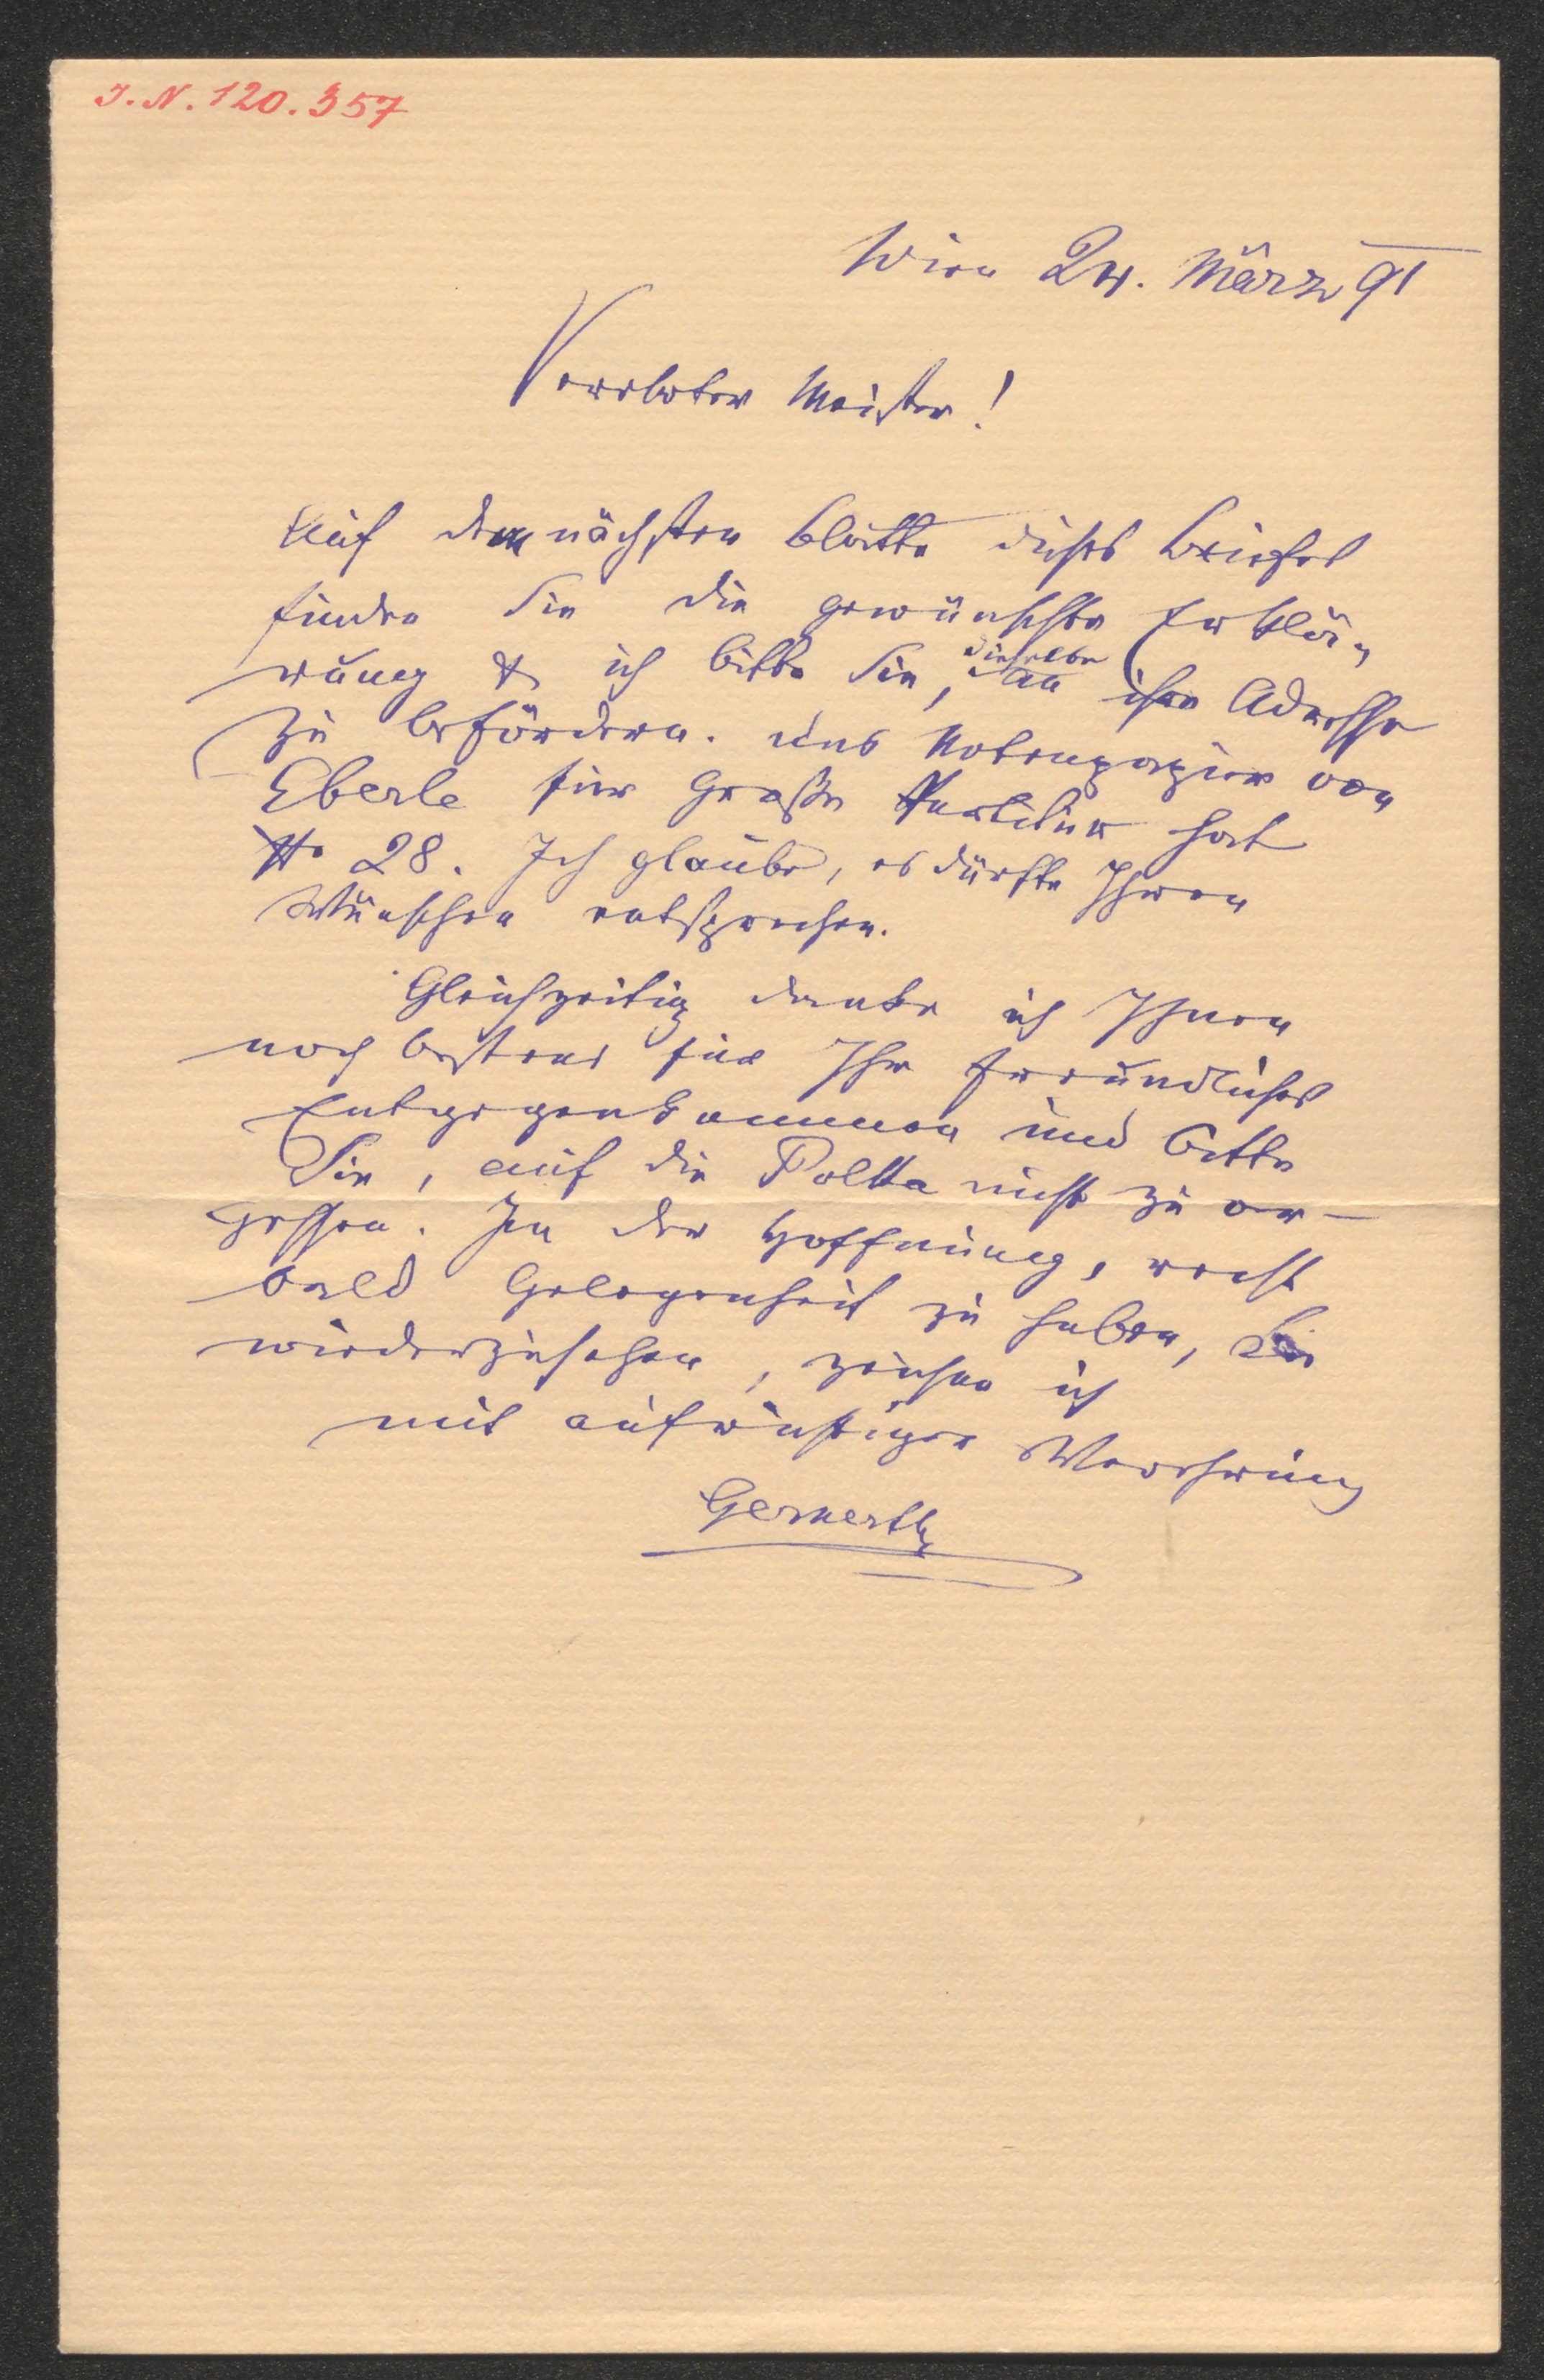 I. N. 120.357
Wien 24. März 91
Verehrter Meister!
Auf dem nächsten Blatte dieses Briefes
finden Sie die gewünschte Erklä-
rung & ich bitte Sie, dieselbe an ihre Adresse
zu befördern. Das Notenpapier von
Eberle für große Partitur hat
No 28. Ich glaube, es dürfte Ihren
Wünschen entsprechen.
Gleichzeitig danke ich Ihnen
noch bestens für Ihr freundliches
Entgegenkommen und bitte
Sie, auf die Polka nicht zu ver-
gessen. In der Hoffnung, recht
bald Gelegenheit zu haben, Sie
wiederzusehen, zeichne ich
mit aufrichtiger Verehrung
Gernerth